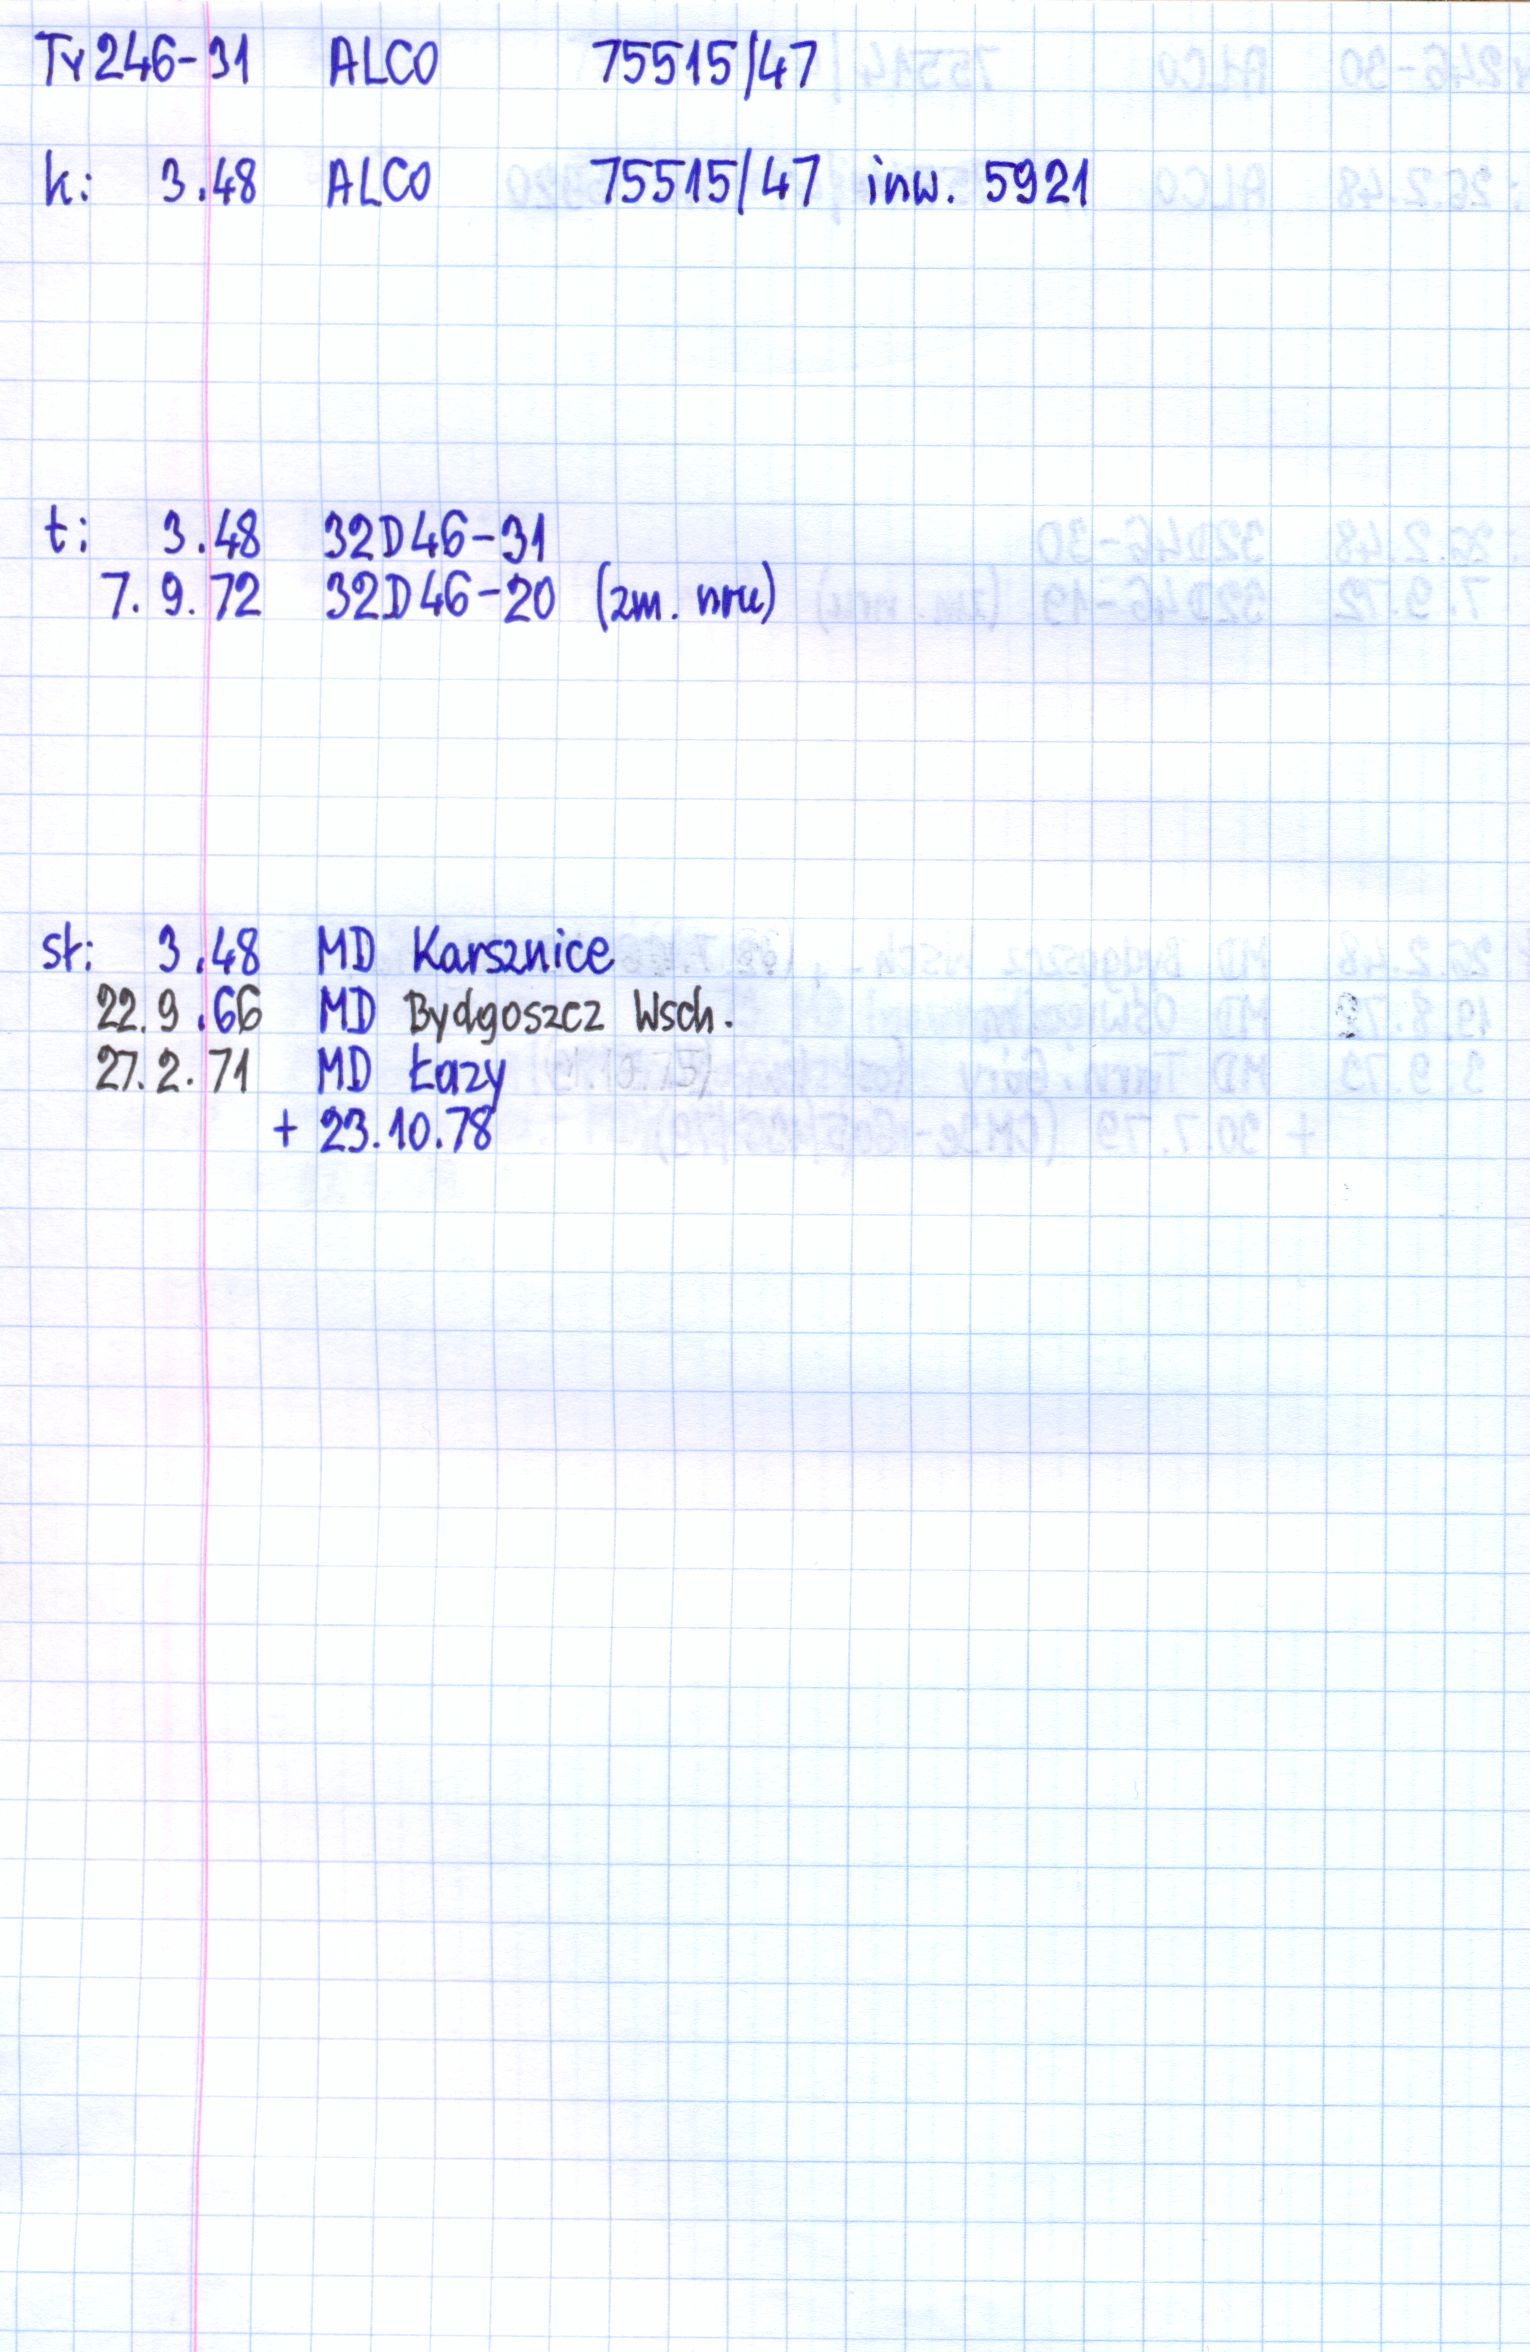 Ty246-31 ALCO 75515/47
k: 3.48 ALCO 75515/47 inw. 5921
t: 3.48 32D46-31
7.9.72 32D46-20 (zm. nru)
st: 3.48 MD Karsznice
22.9.66 MD Bydgoszcz Wsch.
27.2.71 MD Łazy
+ 23.10.78